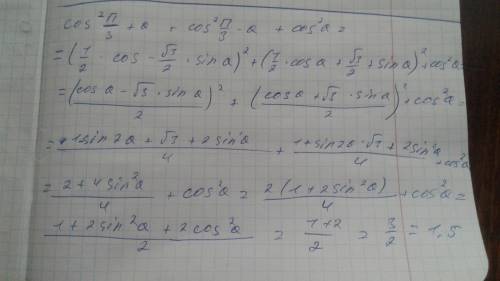 cos²π/3 + a + cos²π/3 - a + cos²a =
= (1/2 · cos - √3/2 · sin a)² + (1/2 · cos a + √3/2 · sin a)² + cos²a =
= (cos a - √3 · sin a / 2)² + (cos a + √3 · sin a / 2)² + cos²a =
= 1 sin 2a + √3 + 2 sin²a / 4 + 1 + sin 2a · √3 + 2 sin²a / 4 + cos²a
= 2 + 4 sin²a / 4 + cos²a = 2 (1 + 2 sin²a) / 4 + cos²a =
1 + 2 sin²a + 2 cos²a / 2 = 1 + 2 / 2 = 3/2 = 1,5